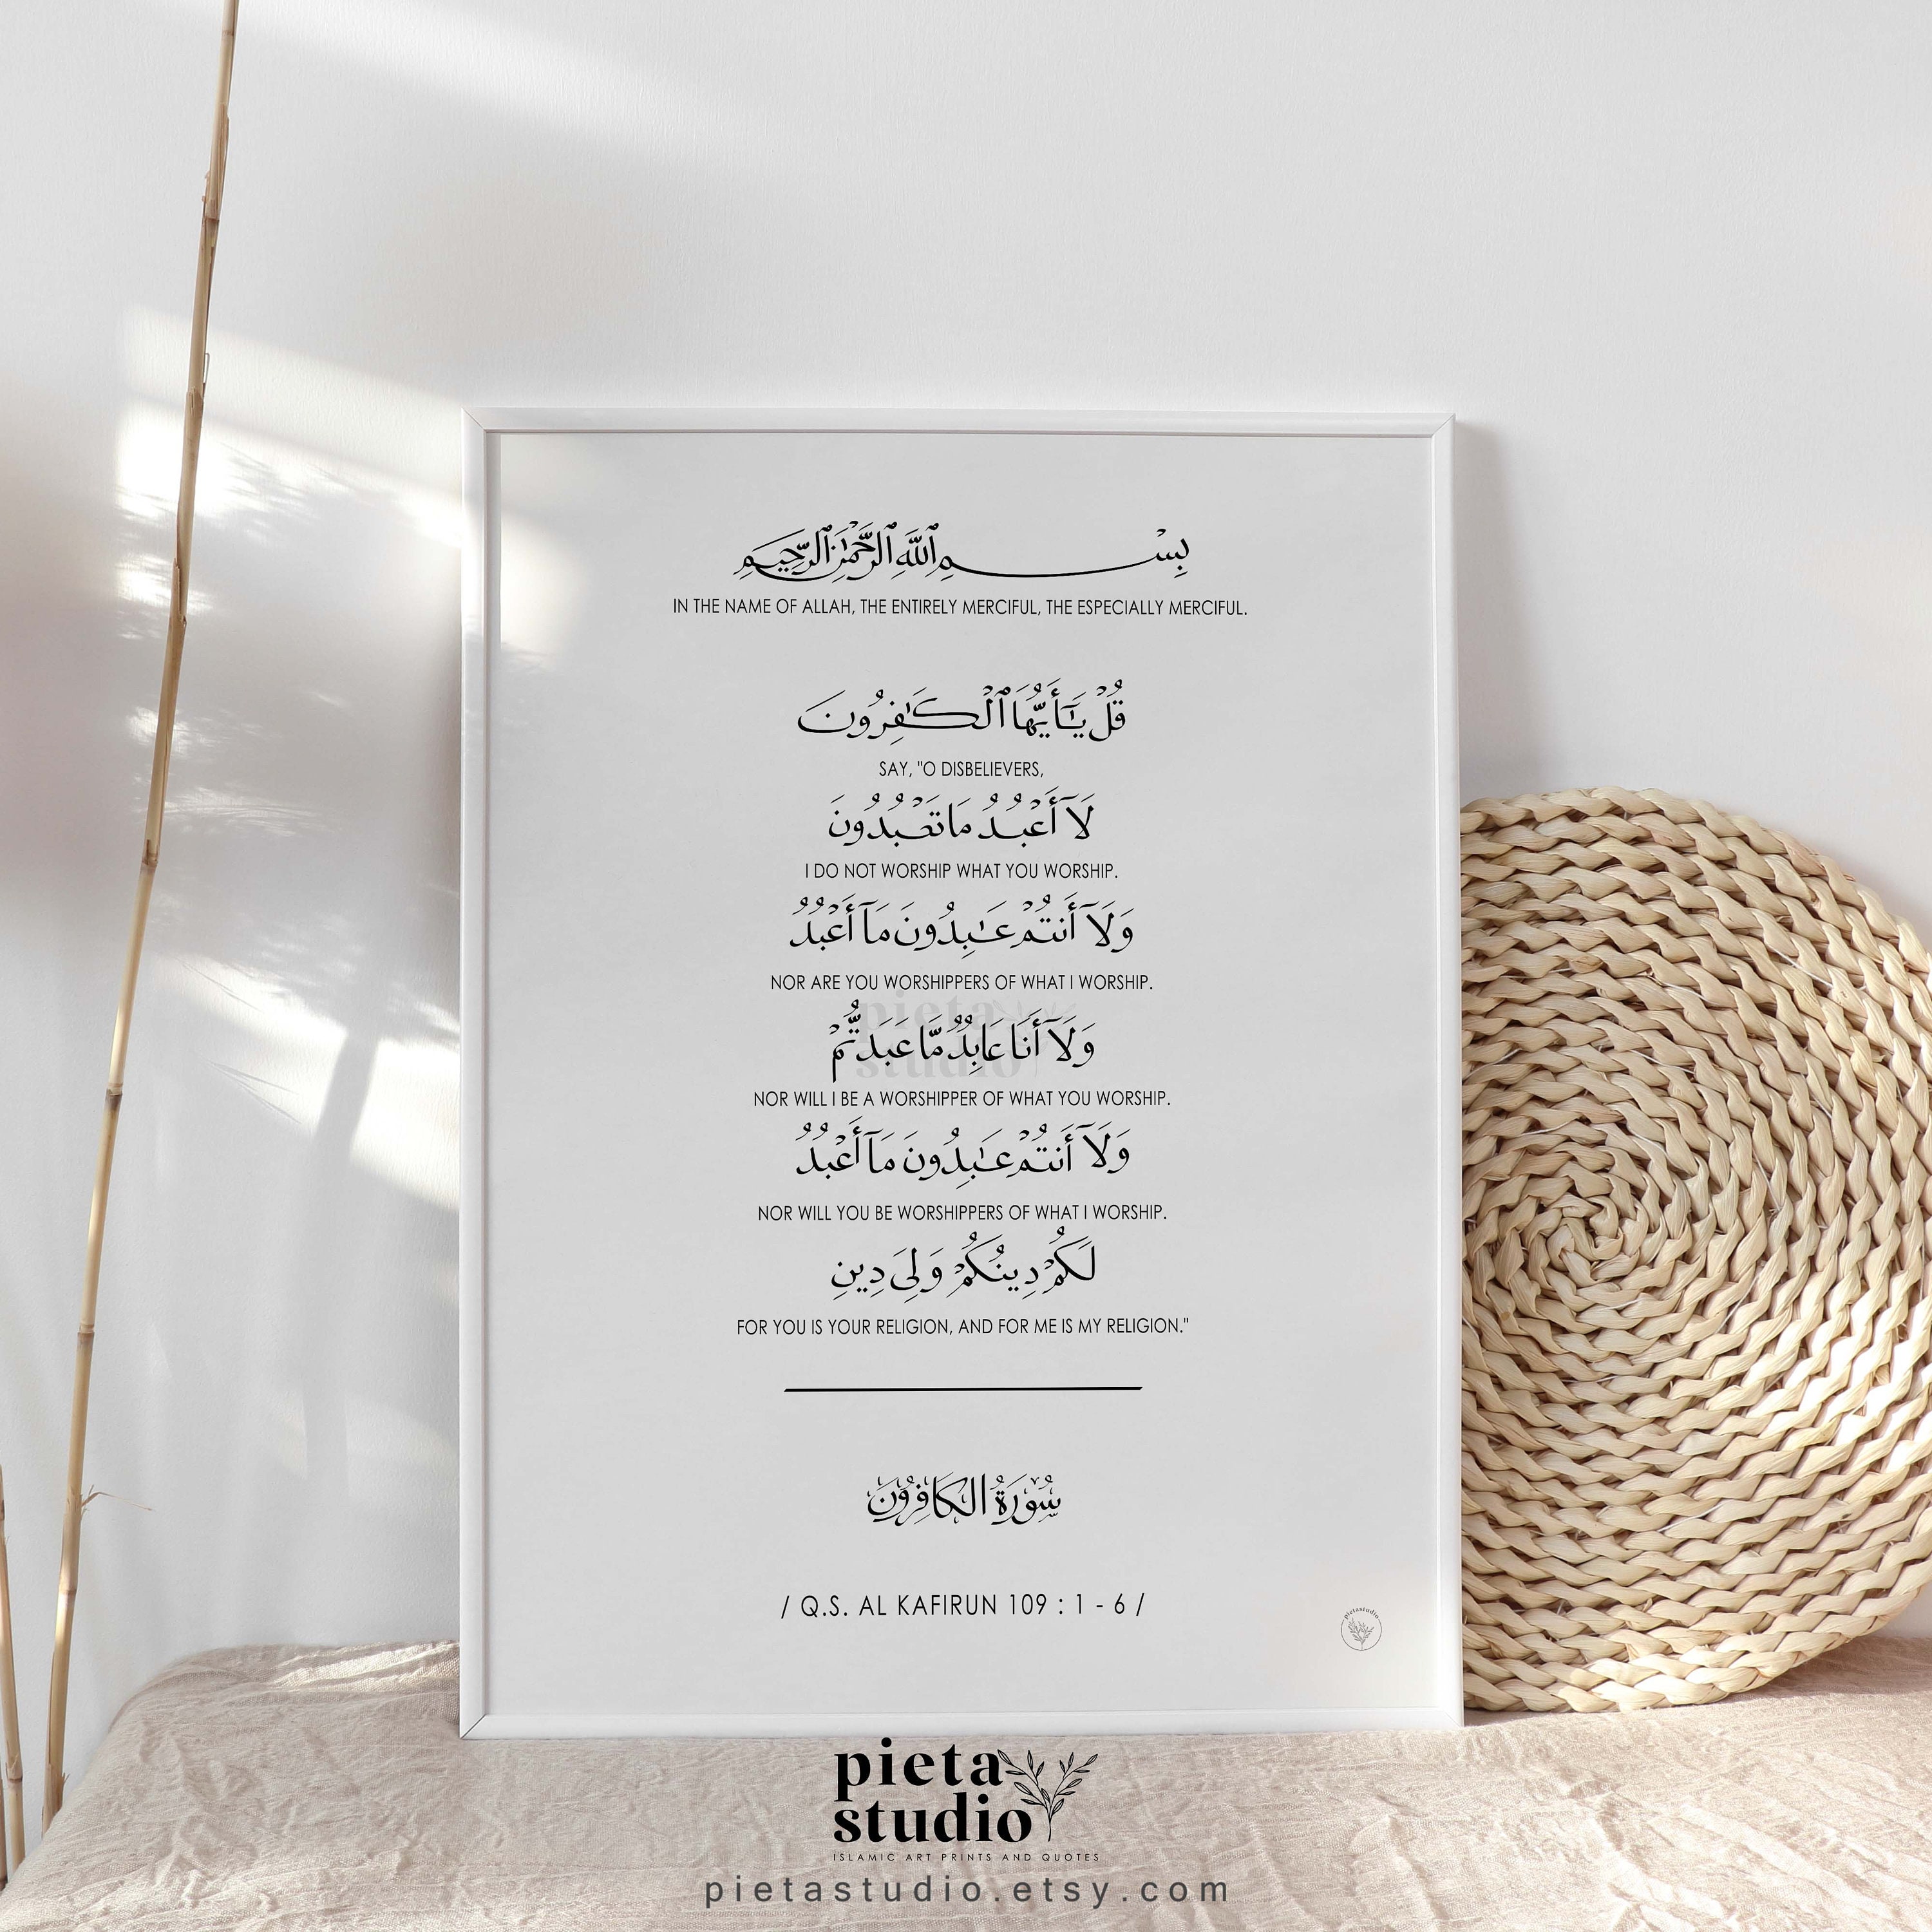 بِسْمِ ٱللَّهِ ٱلرَّحْمَٰنِ ٱلرَّحِيمِ
IN THE NAME OF ALLAH, THE ENTIRELY MERCIFUL, THE ESPECIALLY MERCIFUL.
قُلْ يَٰٓأَيُّهَا ٱلْكَٰفِرُونَ
SAY, "O DISBELIEVERS,
لَآ أَعْبُدُ مَا تَعْبُدُونَ
I DO NOT WORSHIP WHAT YOU WORSHIP.
وَلَآ أَنتُمْ عَٰبِدُونَ مَآ أَعْبُدُ
NOR ARE YOU WORSHIPPERS OF WHAT I WORSHIP.
pieta
وَلَآ أَنَا۠ عَابِدٌ مَّا عَبَدتُّمْ
studio
NOR WILL I BE A WORSHIPPER OF WHAT YOU WORSHIP.
وَلَآ أَنتُمْ عَٰبِدُونَ مَآ أَعْبُدُ
NOR WILL YOU BE WORSHIPPERS OF WHAT I WORSHIP.
لَكُمْ دِينُكُمْ وَلِىَ دِينِ
FOR YOU IS YOUR RELIGION, AND FOR ME IS MY RELIGION."
سُورَةُ الكَافِرُونَ
/ Q.S. AL KAFIRUN 109 : 1 - 6 /
pietastudio
pieta
studio
ISLAMIC ART PRINTS AND QUOTES
pietastudio.etsy.com